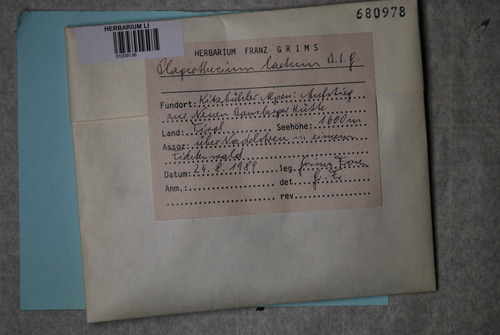 680978
HERBARIUM LI
HERBARIUM FRANZ GRIMS
Plagiothecium laetum B.S.G.
Fundort: Kitzbühler Alpen: Aufstieg
zur Neuen Bamberger Hütte
Land: Tirol Seehöhe: 1600m
Assoz: über Nadelstreu in einem
Fichtenwald
Datum: 24.8.1989 leg.
Anm.: det.
rev.